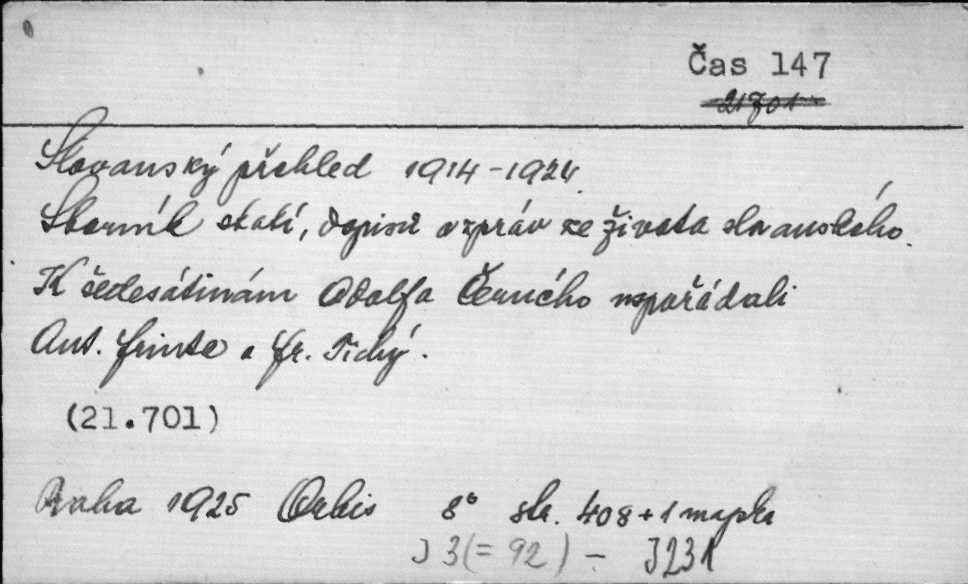 Čas 147
21701
Slovanský přehled 1914-1924.
Sborník statí, dopisů a zpráv ze života slovanského.
K šedesátinám Adolfa Černého uspořádali
Ant. Frinta a Fr. Tichý.
(21.701)
Praha 1925 Orbis 8° str. 408 + 1 mapka
J 3 (= 92) - J231